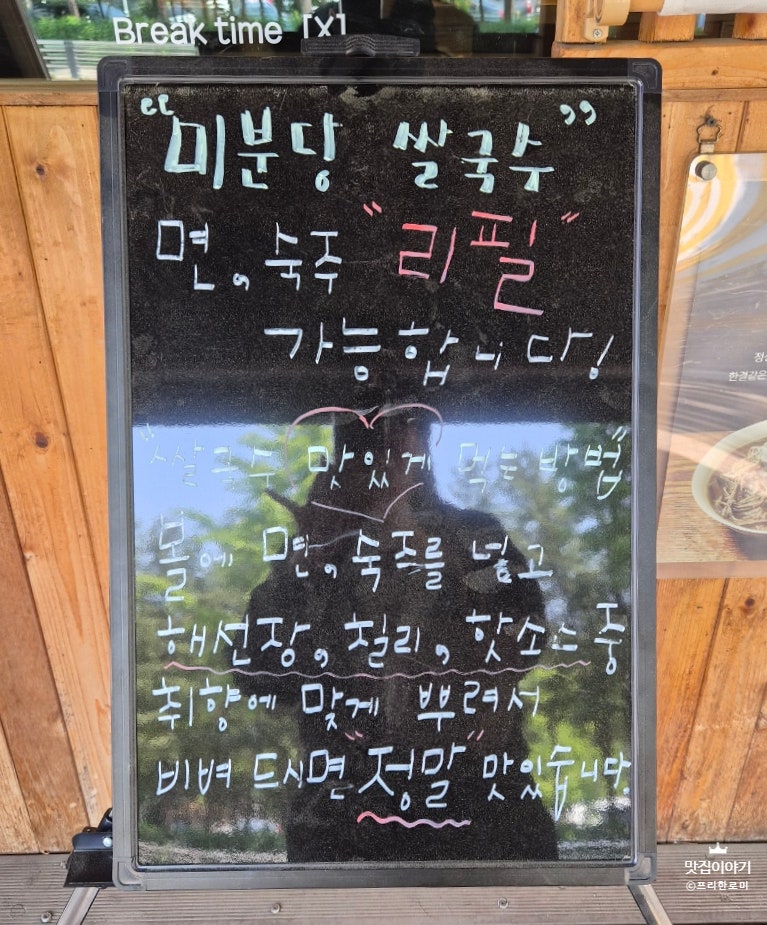 Break time [X]
"미분당 쌀국수"
면, 숙주 "리필"
가능합니다!
"쌀국수 맛있게 먹는 방법"
볼에 면, 숙주를 넣고
해선장, 칠리, 핫소스 중
취향에 맞게 뿌려서
비벼 드시면 "정말" 맛있습니다.
한결같은
맛집이야기
©프리한로미